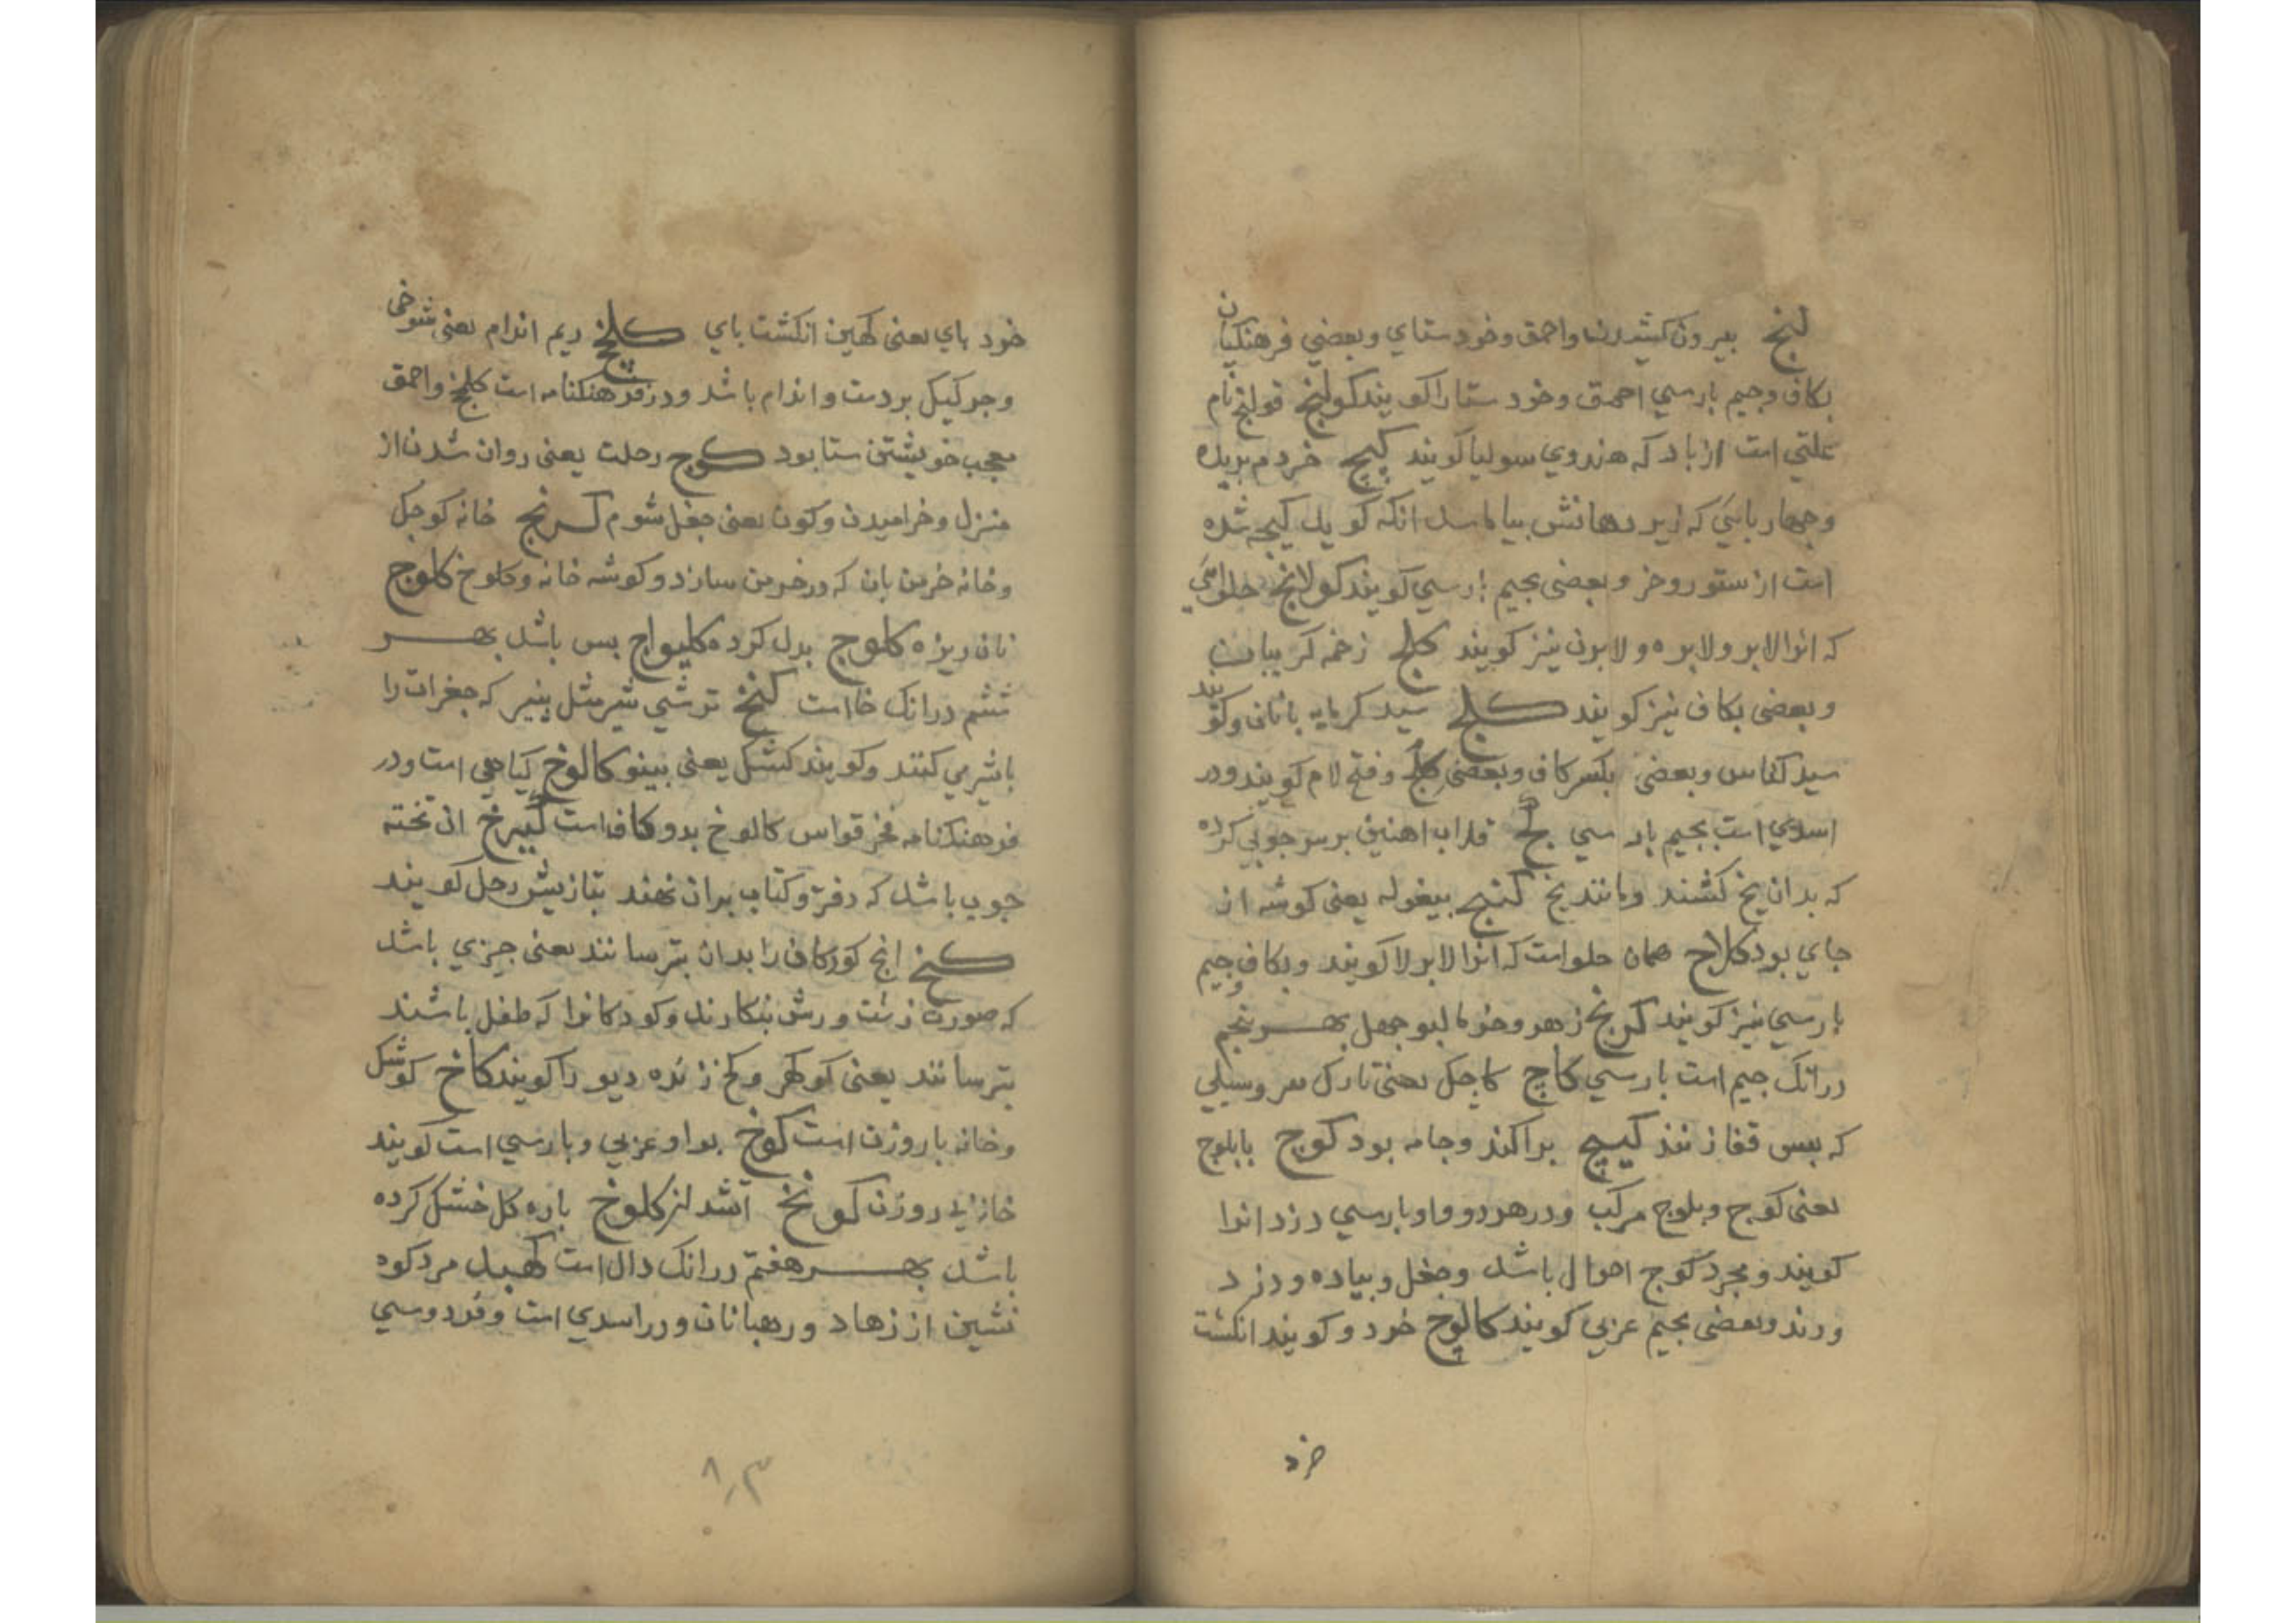 لنج بیرون کشیدن و احمق و خودستای و بعضی فرهنکیان
بکاف وجیم بارسی احمق وخود ستا را کویند کولنج قولنج نام
علتی است از باد که هندوی سولیا کویند کیج خر دم بریده
وجهاربایی که زیر دهانش بیاماسد انکه کوید کیجه شده
است از ستور وخر و بعضی بجیم بارسی کویند کولانج حلوائی
که انرا لابر ولابره و لابرون نیز کویند کلج زخمه کریبان
وبعضی بکاف نیز کویند کلج سبد کرمابه بانان وکویند
سبد کناس وبعضی بکسر کاف وبعضی وفتح لام کویند ودر
اسدی است بجیم بارسی کج قلاب اهنین برسر جوبی کرده
که بدان یخ کشند ومانند یخ کنج بیغوله یعنی کوشه ان
جای بود کلاج همان حلواست که انرا لابرلا کویند وبکاف وجیم
بارسی نیز کویند کونج زهر و جهل بهر بنجم
درانک جیم است بارسی کاج کاجک یعنی تارک سر وسیلی
که بس قفا زنند کیج براکند وجامه بود کوج بابلوج
یعنی کوج وبلوج مرکب ودر هر دو واو بارسی دزد انرا
کویند ومجرد کوج احوال باشد وجغل وبیاده ودزد
ورند وبعضی بجیم عربی کویند کالوج خرد و کویند انکشت
خرد
خود بای یعنی کهین انکشت بای کلخج ریم اندام یعنی شوخی
وجرکی که بر دست و اندام باشد ودر فرهنکنامه است کلخج واحمق
معجب خویشتن ستا بود کوج رحلت یعنی روان شدن از
منزل وخرامیدن وکون یعنی جغل شوم کرنج خانه کوجک
وخانه خرمن بان که در خرمن سازد و کوشه خانه وکلوخ کلوج
نان ریزه کلوج بدل کرده کلیواج بس باشد بهر
ششم درانک خا است کنخ ترشی شیر مثل بنیر که جغرات را
باشیر می کنند وکویند کشک یعنی بینو کالوخ کیاهی است ودر
فرهنکنامه فخر قواس کالوخ بدو کاف است کیرخ ان تخته
جوب باشد که دفتر و کتاب بران نهند بتازیش رحل کویند
کخ انج کودکان را بدان بترسانند یعنی جیزی باشد
که صورت زشت ورش بنکارند وکودکانرا که طفل باشند
بترسانند یعنی کوکهر وکخ ژنده دیو را کویند کاخ کوشک
وخانه با روزن است کوخ بواو عربی وبارسی است کویند
خانه بی روزن کونخ اتشد لنر کلوخ باره کل خشک کرده
باشد بهر هفتم درانک دال است کهبد مرد کوه
نشین از زهاد ورهبانان ودر اسدی است وفردوسی
۸۳